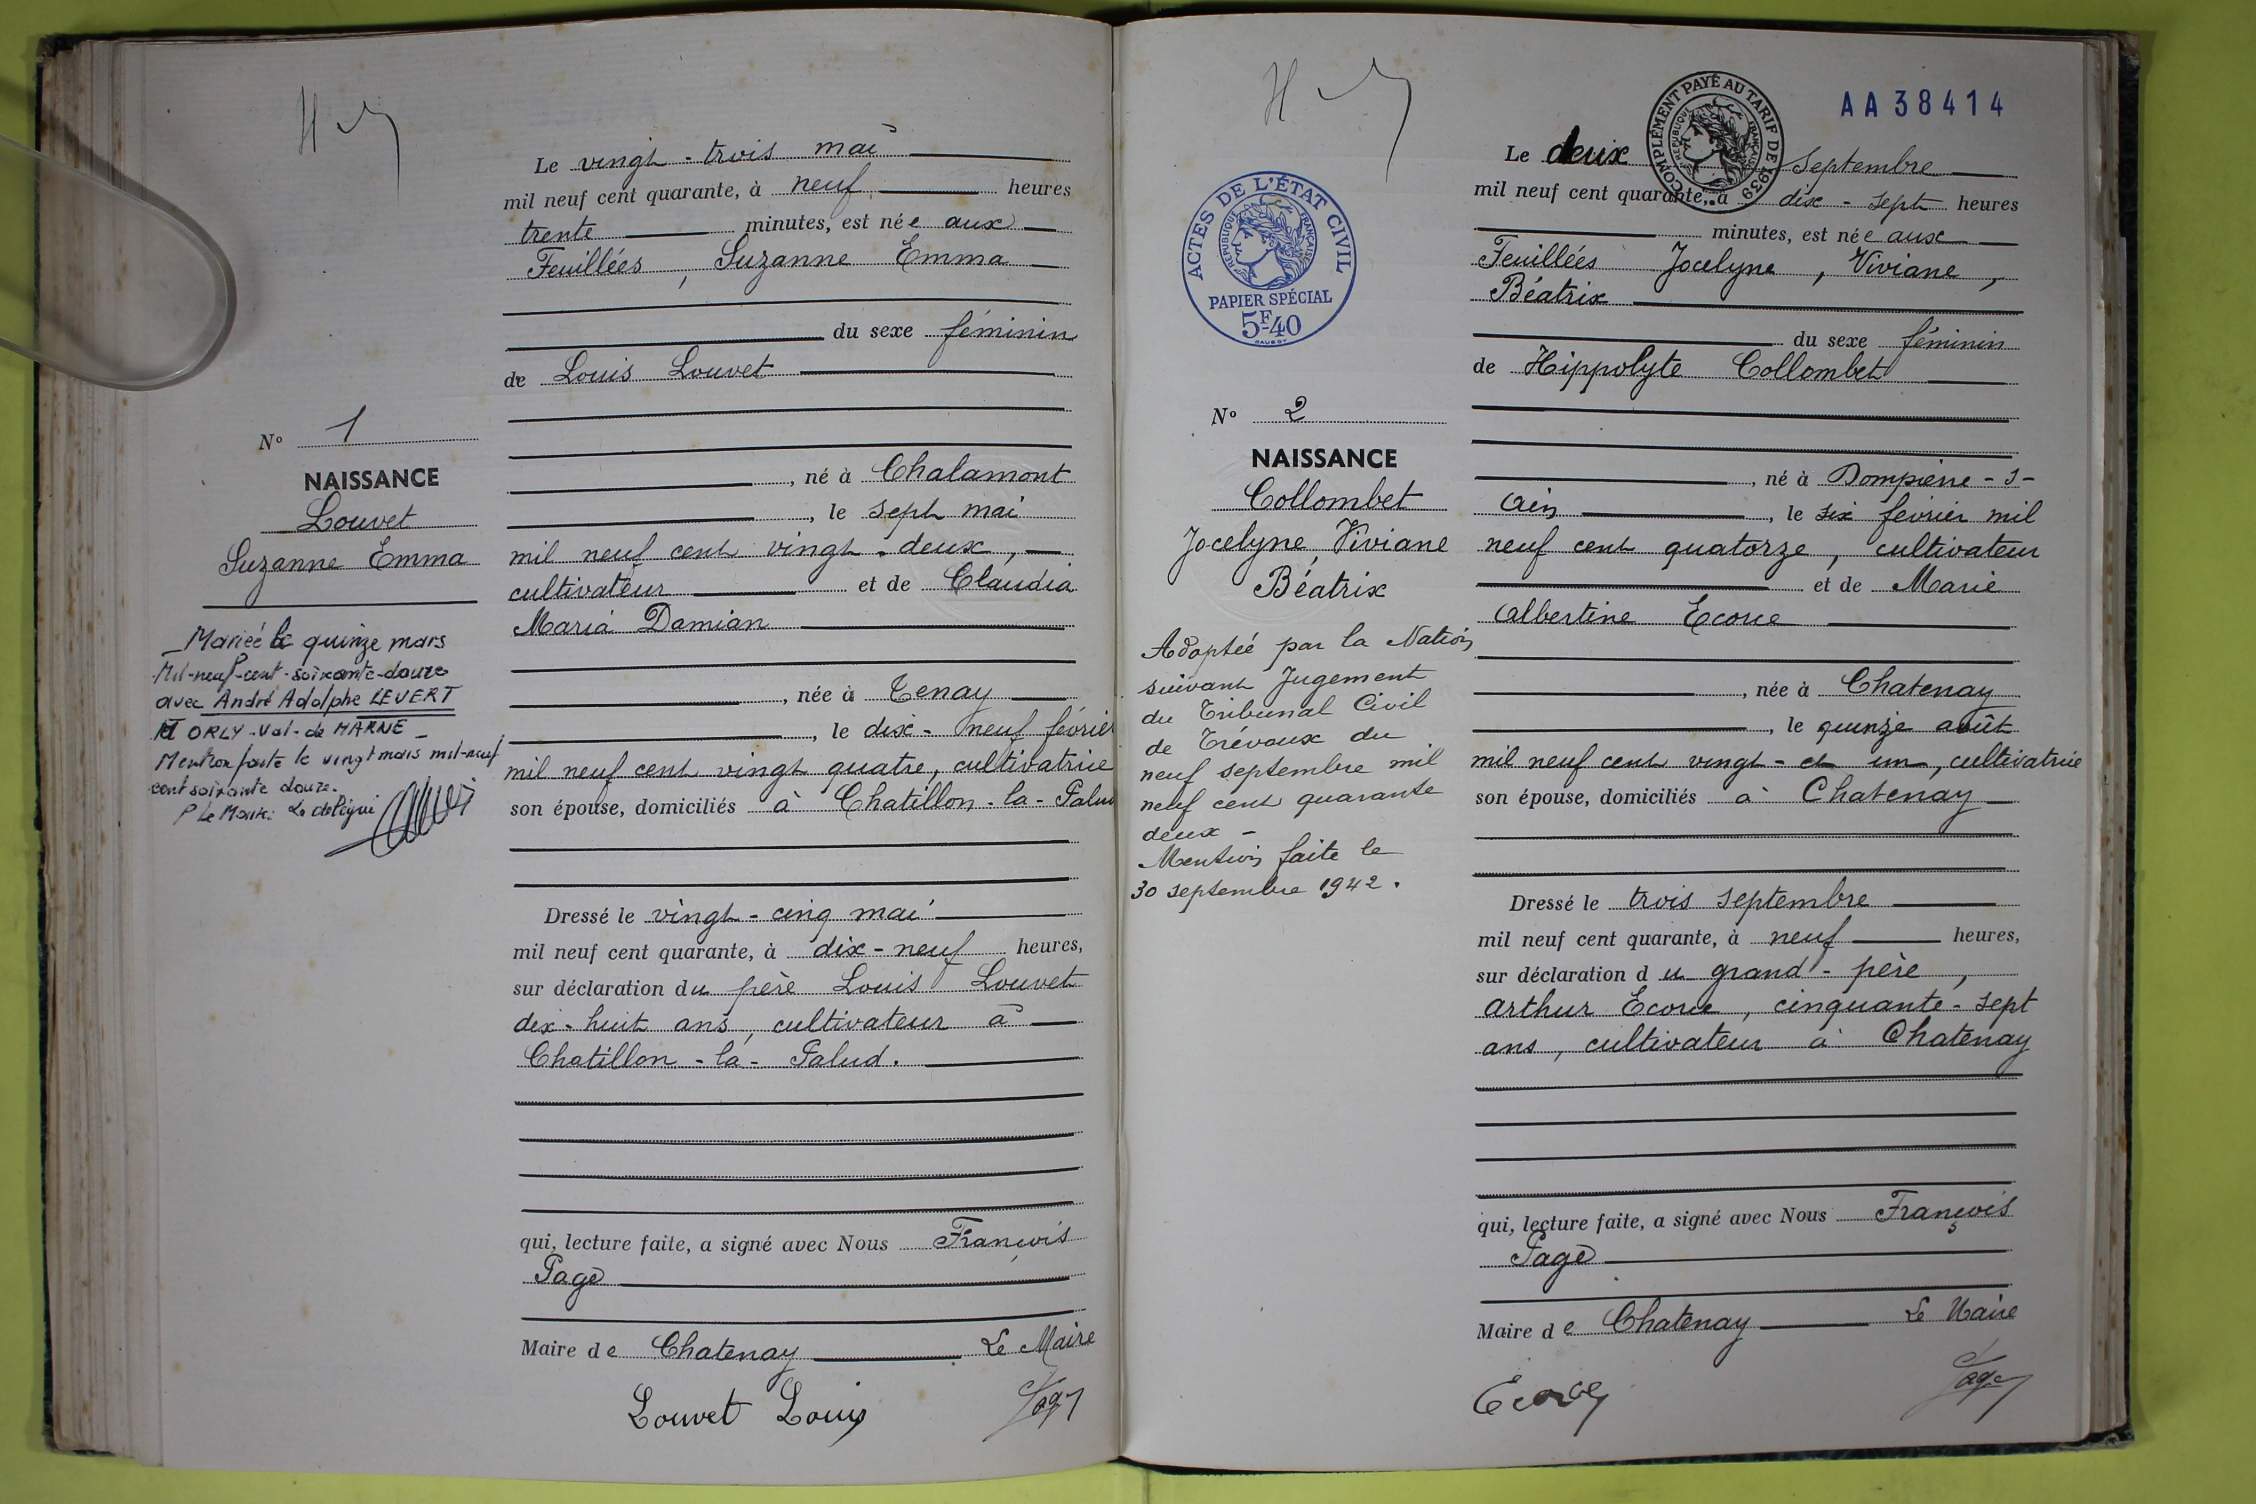 Le vingt-trois mai
mil neuf cent quarante, à neuf heures
trente minutes, est née aux
Feuillées, Suzanne Emma
du sexe féminin
de Louis Louvet
N° 1
NAISSANCE
Louvet
Suzanne Emma
Mariée le quinze mars
Mil-neuf-cent-soixante-douze
avec André Adolphe LEVERT
A ORLY-Val-de MARNE
Mention faite le vingt mars mil-neuf
cent soixante douze.
P Le Maire: Le délégué
, né à Chalamont
, le sept mai
mil neuf cent vingt-deux,
cultivateur et de Claudia
Maria Damian
, née à Tenay
, le dix-neuf février
mil neuf cent vingt quatre, cultivatrice
son épouse, domiciliés à Chatillon-la-Palud
Dressé le vingt-cinq mai
mil neuf cent quarante, à dix-neuf heures,
sur déclaration du père Louis Louvet
dix-huit ans, cultivateur à
Chatillon-la-Palud.
qui, lecture faite, a signé avec Nous François
Page
Maire de Chatenay Le Maire
Louvet Louis Page
AA38414
COMPLÉMENT PAYÉ AU TARIF DE 1939
RÉPUBLIQUE FRANÇAISE
Le deux septembre
mil neuf cent quarante, à dix-sept heures
minutes, est née aux
Feuillées Jocelyne, Viviane,
Béatrix
du sexe féminin
de Hippolyte Collombet
ACTES DE L'ÉTAT CIVIL
RÉPUBLIQUE FRANÇAISE
PAPIER SPÉCIAL
5F40
N° 2
NAISSANCE
Collombet
Jocelyne, Viviane
Béatrix
Adoptée par la Nation
suivant Jugement
du Tribunal Civil
de Trévoux du
neuf septembre mil
neuf cent quarante
deux -
Mention faite le
30 septembre 1942.
, né à Dompierre-s-
Ain , le six février mil
neuf cent quatorze, cultivateur
et de Marie
Albertine Ecorce
, née à Chatenay
, le quinze août
mil neuf cent vingt-et un, cultivatrice
son épouse, domiciliés à Chatenay
Dressé le trois septembre
mil neuf cent quarante, à neuf heures,
sur déclaration du grand-père,
Arthur Ecorce, cinquante-sept
ans, cultivateur à Chatenay
qui, lecture faite, a signé avec Nous François
Page
Maire de Chatenay Le Maire
Ecorce Page